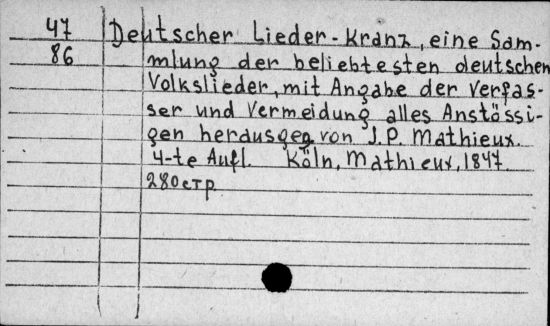 47 Deutscher Lieder-Kranz, eine Sam-
86 mlung der beliebtesten deutschen
Volkslieder, mit Angabe der Verfas-
ser und Vermeidung alles Anstössi-
gen herausgeg. von J.P. Mathieux.
4-te Aufl. Köln, Mathieux, 1847.
280 стр.